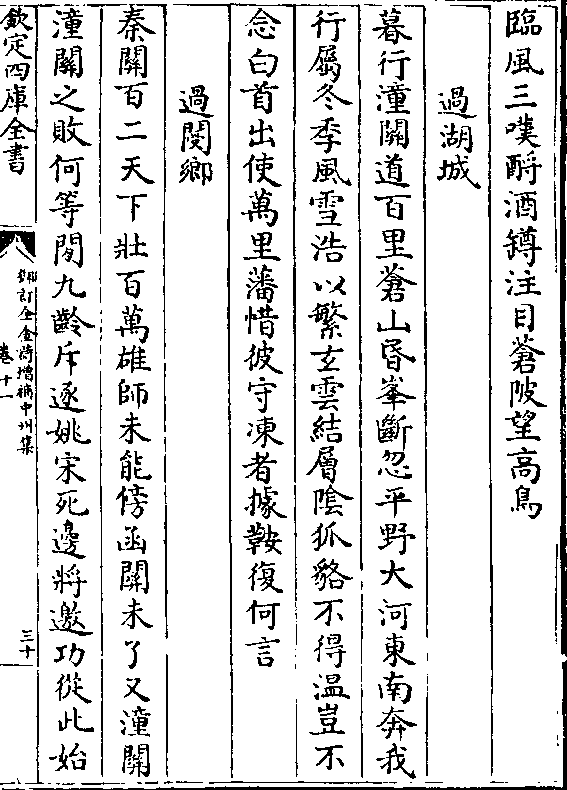 臨風三嘆酹酒罇注目蒼陂望高鳥
過湖城
暮行潼關道百里蒼山昏峯斷忽平野大河東南奔我
行屬冬季風雪浩以繁玄雲結層陰狐貉不得溫豈不
念白首出使萬里藩惜彼守凍者據鞍復何言
過閿鄉
秦關百二天下壯百萬雄師未能傍函關未了又潼關
潼關之敗何等閒九齡斥逐姚宋死邊將邀功從此始
欽定四庫全書
御訂全金詩增補中州集
卷十一
三十